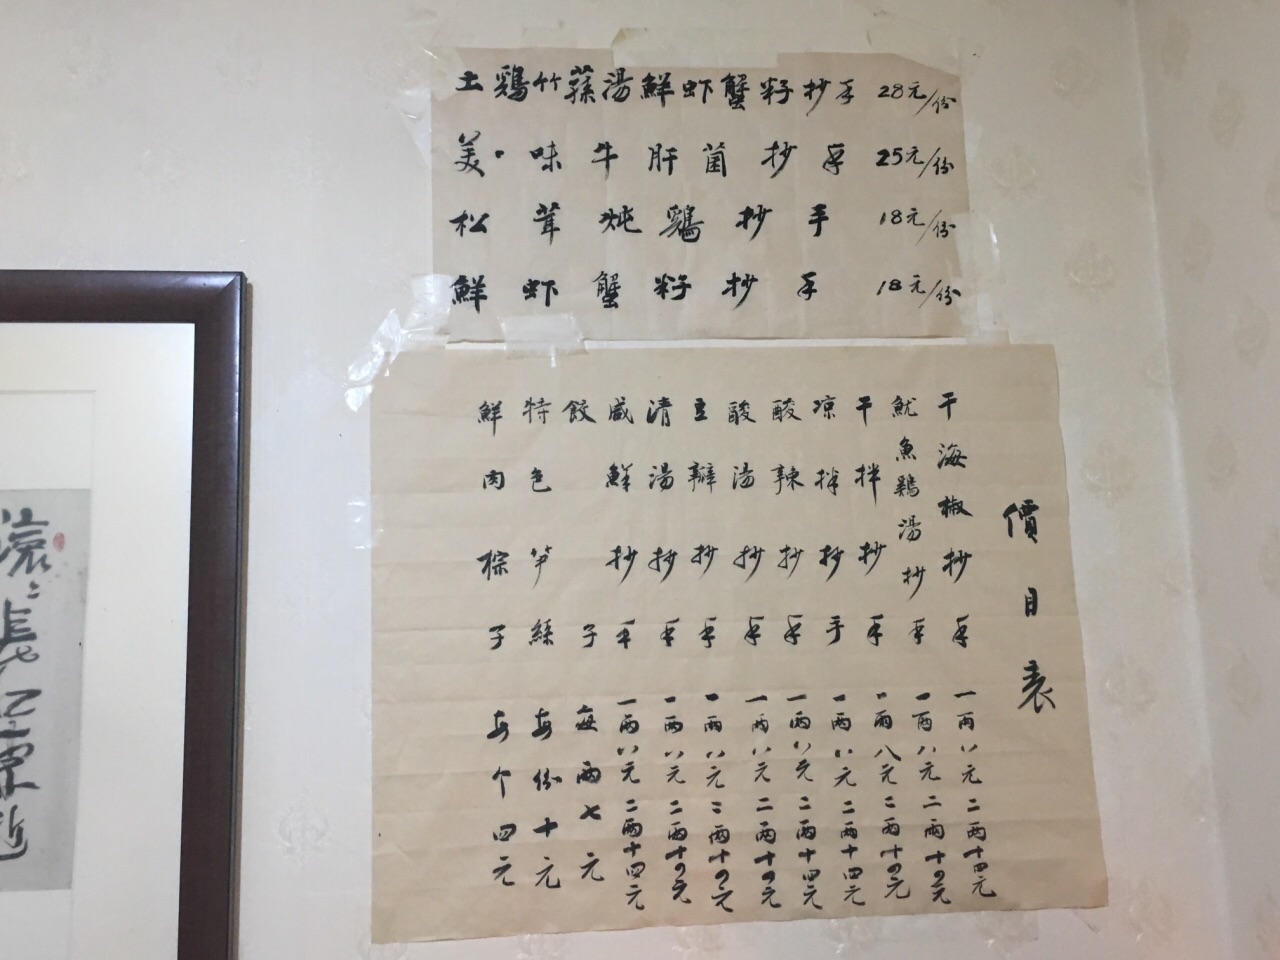 土鷄竹蓀湯鮮虾蟹籽抄手 28元/份
美味牛肝菌抄手 25元/份
松茸炖鷄抄手 18元/份
鮮虾蟹籽抄手 18元/份
價目表
干海椒抄手 一两八元 二两十四元
魷魚鷄湯抄手 一两八元 二两十四元
干拌抄手 一两八元 二两十四元
凉拌抄手 一两八元 二两十四元
酸辣抄手 一两八元 二两十四元
酸湯抄手 一两八元 二两十四元
豆瓣抄手 一两八元 二两十四元
清湯抄手 一两八元 二两十四元
咸鮮抄手 一两八元 二两十四元
餃子 每两七元
特色笋絲 每份十元
鮮肉棕子 每个四元
滚滚長江東逝